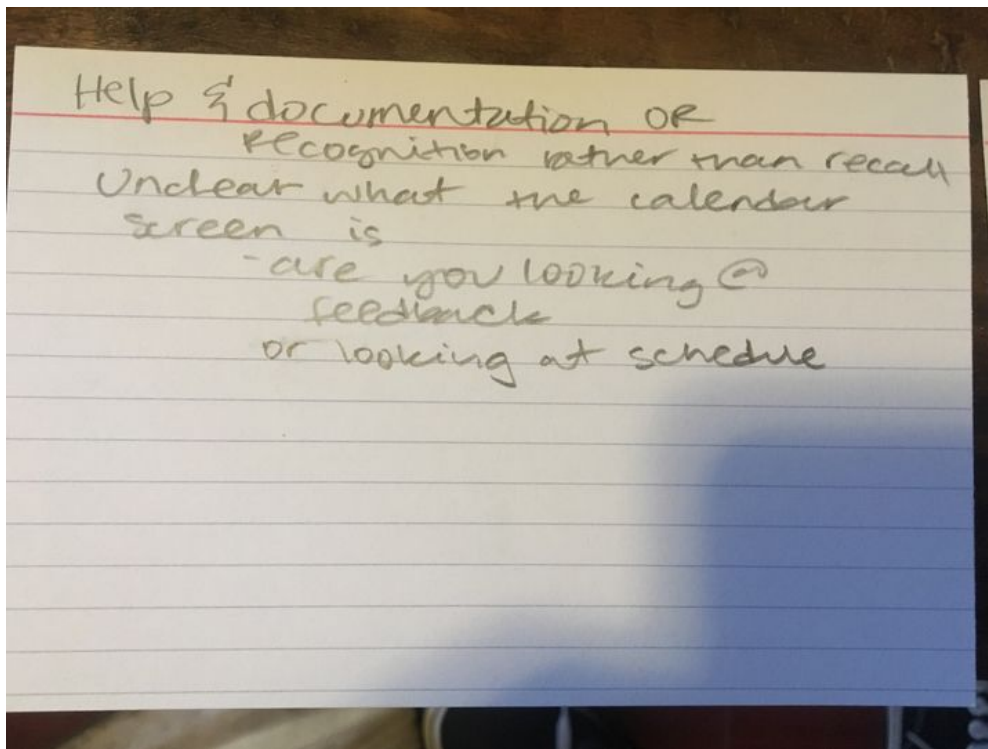 Help & documentation OR
Recognition rather than recall
Unclear what the calendar
screen is
- are you looking @
feedback
or looking at schedule